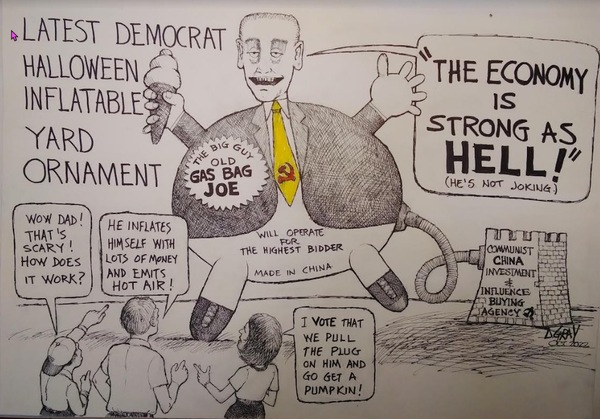 LATEST DEMOCRAT
HALLOWEEN
INFLATABLE
YARD
ORNAMENT
"THE ECONOMY
IS
STRONG AS
HELL!"
(HE'S NOT JOKING)
THE BIG GUY
OLD
GAS BAG
JOE
WILL OPERATE
FOR
THE HIGHEST BIDDER
MADE IN CHINA
WOW DAD!
THAT'S
SCARY!
HOW DOES
IT WORK?
HE INFLATES
HIMSELF WITH
LOTS OF MONEY
AND EMITS
HOT AIR!
I VOTE THAT
WE PULL
THE PLUG
ON HIM AND
GO GET A
PUMPKIN!
COMMUNIST
CHINA
INVESTMENT
&
INFLUENCE
BUYING
AGENCY
OCT 2022